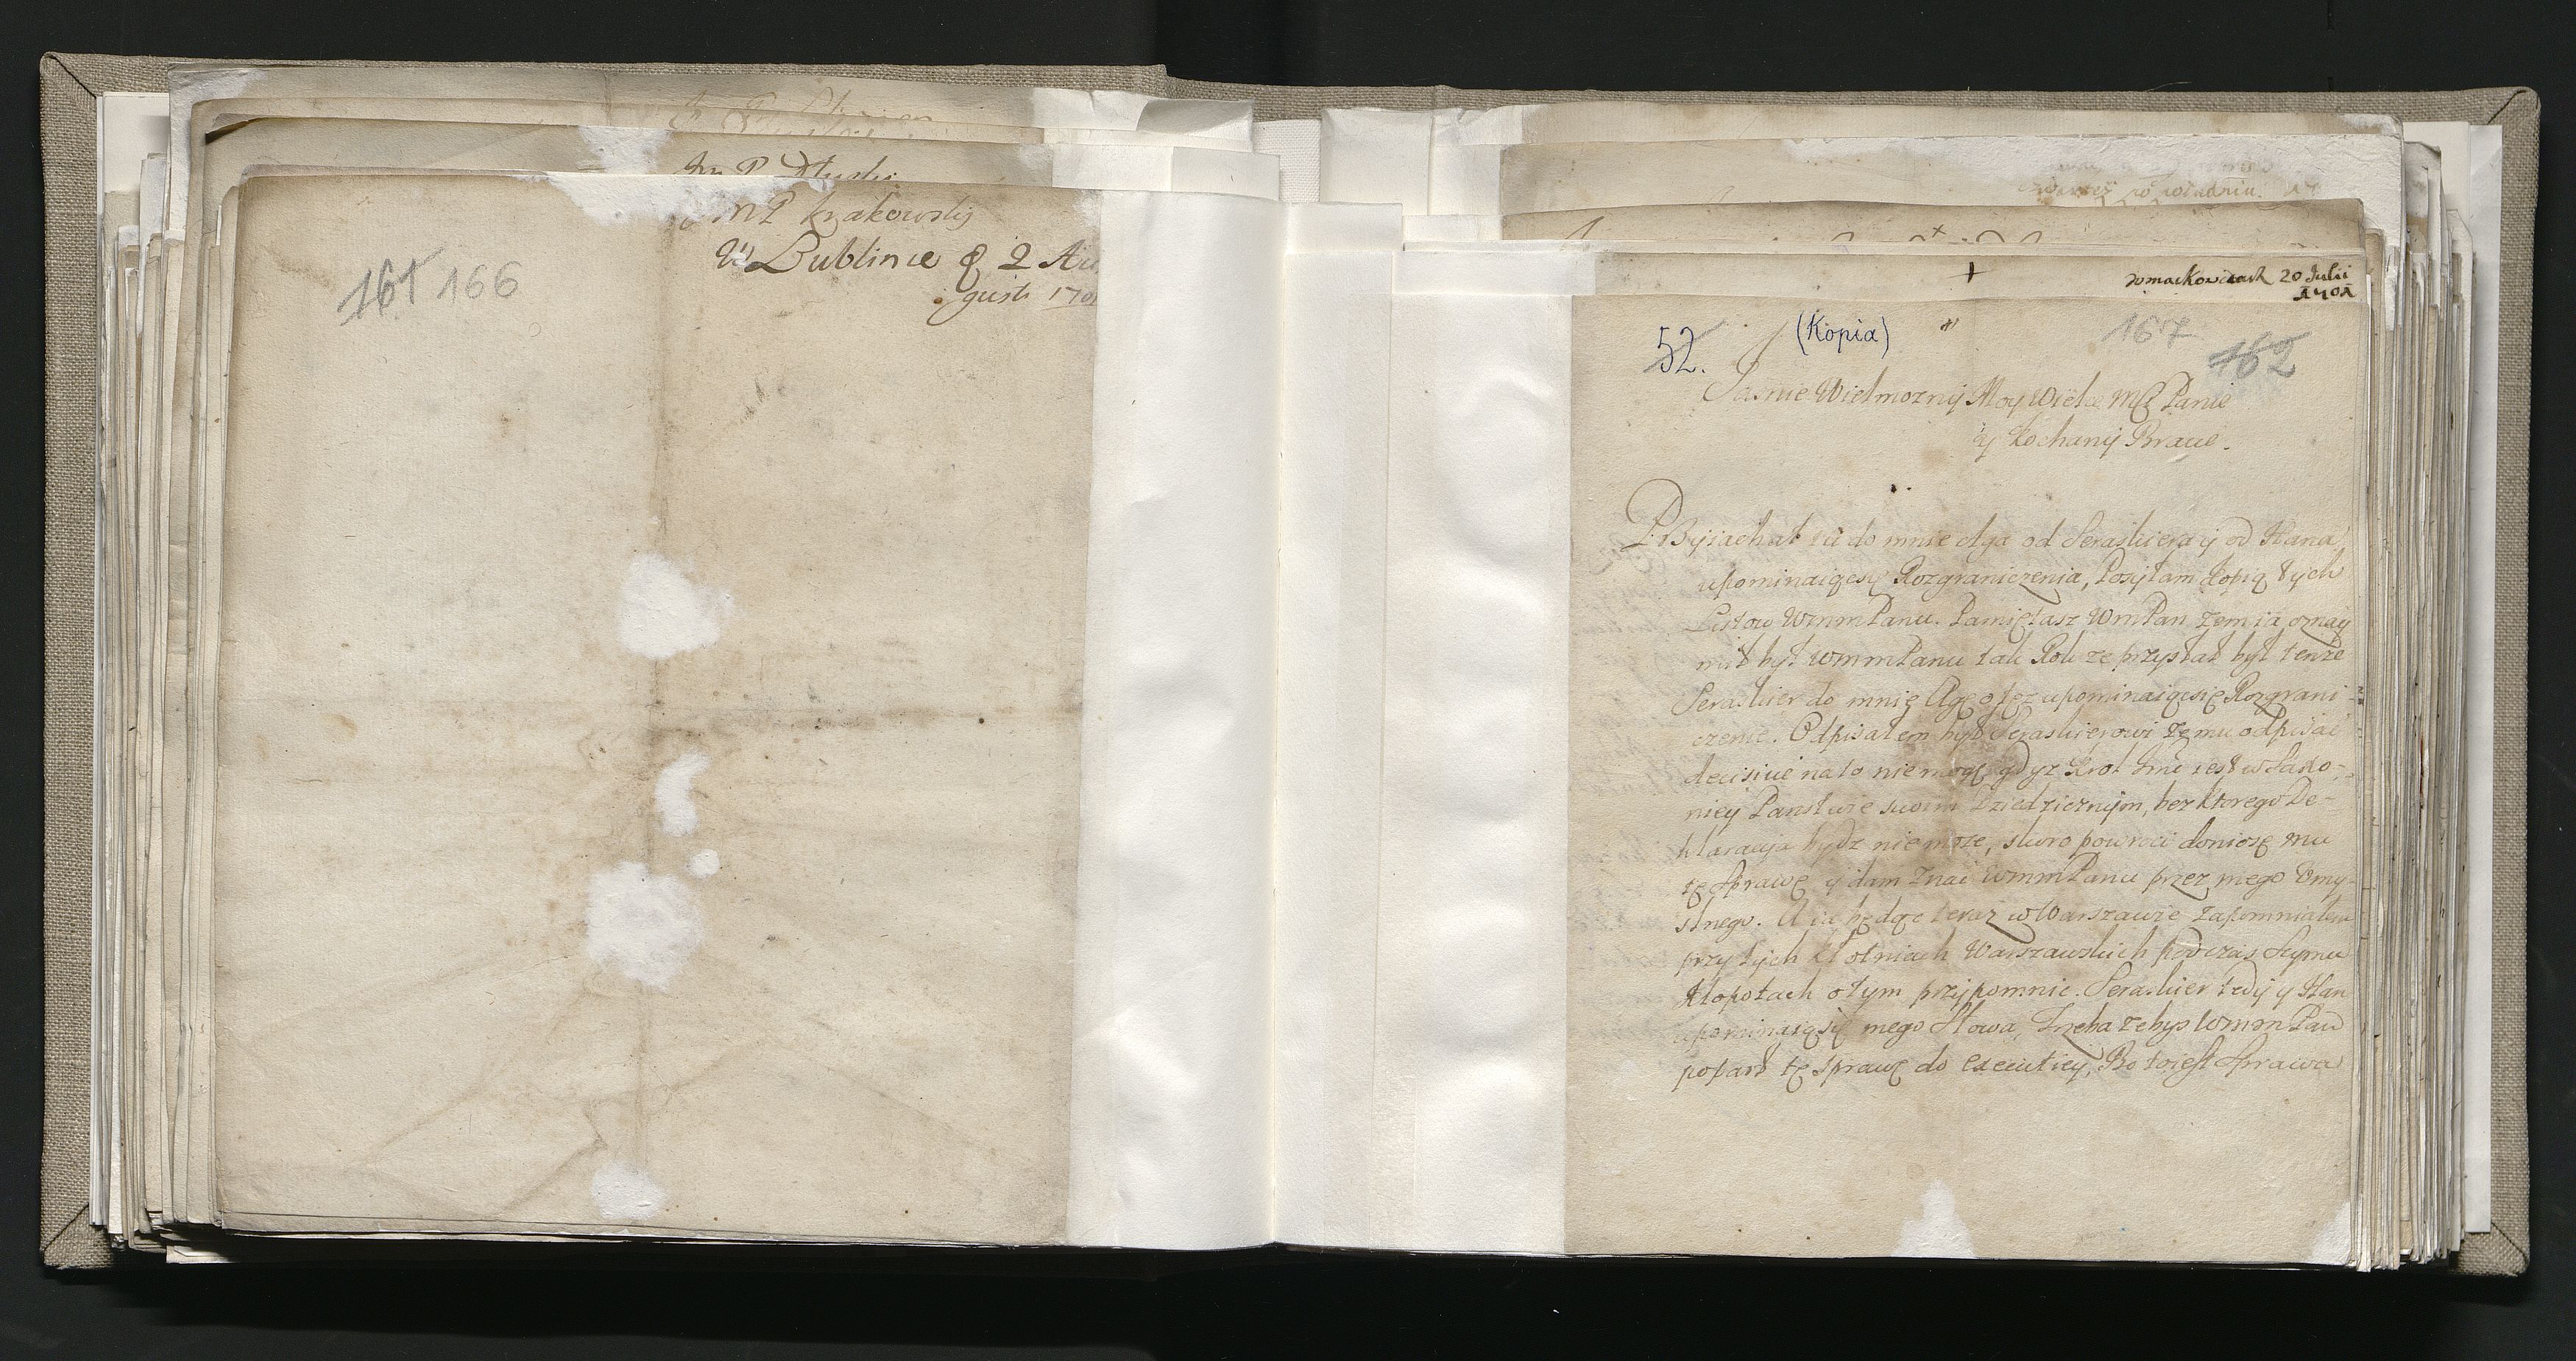 Jm P Dłuski
JMP krakowskij
W Lublinie 8 2 Au
gusti 1701
161 166
w markowicach 20 Julii
1701
52. (Kopia) 167
162
Jasnie Wielmoznij Moy Wielce MCP Panie
y Kochanij Bracie.
PRzyiachał tu do mnie Aga od Seraskiera ÿ od Hana
upominaiąc się Rozgraniczenia, Posyłam kopią tych
Listow WmmPanu. Pamiętasz WmPan zem ia oznay
mił był WmmPanu tak Rok ze przysłał był tenze
Seraskier do mnie Agę o tęz upominaiąc się Rozgrani
czenie. Odpisałem był Seraskierowi ze mu odpisac
decisive na to nie mogę gdyz Krol Jmc iest w Saxo-
niey Panstwie swoim Dziedzicznijm, bez ktorego De-
klaracja bydz nie moze, skoro powroci doniosę mu
tę sprawę y dam znac WmmPanu przez mego Vmy-
slnego. A ia będąc teraz w Warszawie zapomniałem
przy tych kłotniach Warszawskich podczas Seymu
kłopotach o tym przypomnic. Seraskier tedy y Han
upominaią się mego słowa, Trzeba zebys WmmPan
poparł tę sprawę do Executiey, Bo to iest sprawa